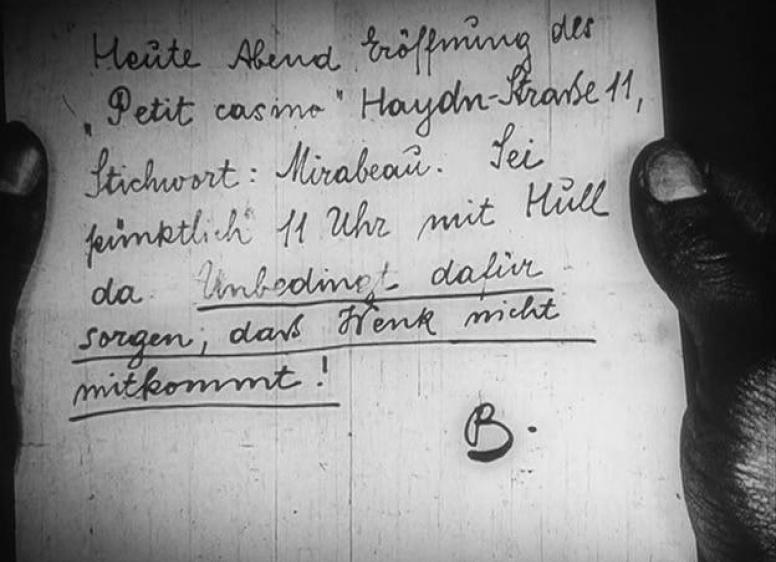 Heute Abend Eröffnung des
„Petit casino" Haydn-Straße 11,
Stichwort: Mirabeau. Sei
pünktlich 11 Uhr mit Hull
da Unbedingt dafür
sorgen, daß Wenk nicht
mitkommt!
B.